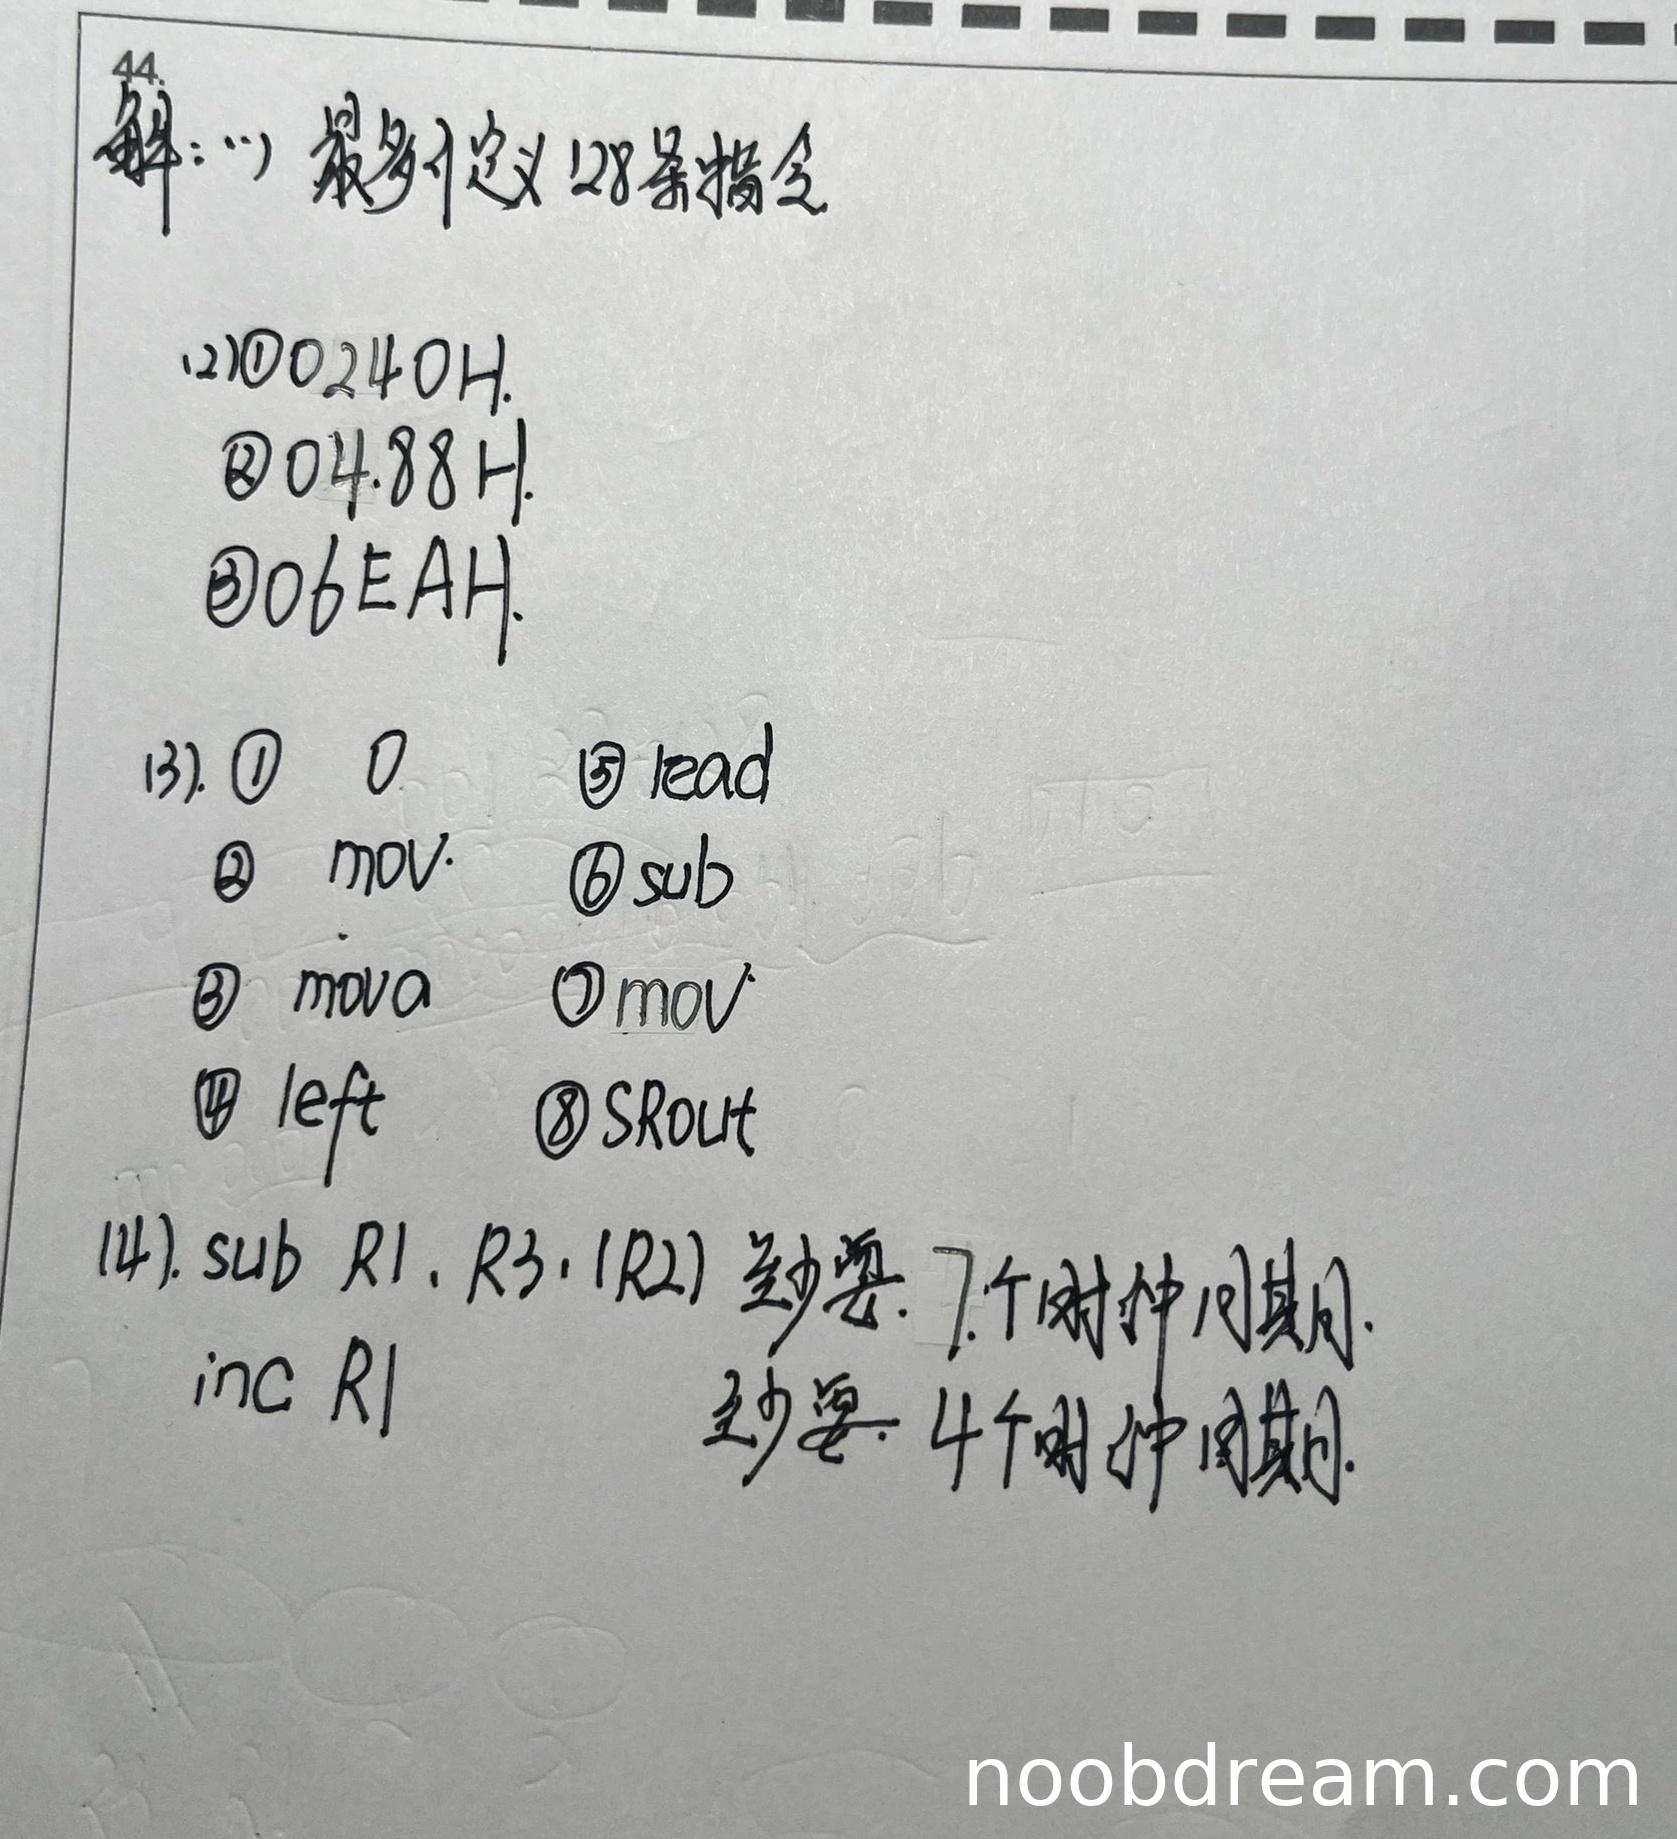 44.
解:(1) 最多可定义128条指令
(2)①0240H.
②04.88H.
③06EAH.
(3). ① 0 ⑤ read
② mov. ⑥ sub
③ mova ⑦ mov
④ left ⑧ SRout
(4). sub R1, R3, (R2) 至少要 7个时钟周期.
inc R1 至少要 4个时钟周期.
noobdream.com